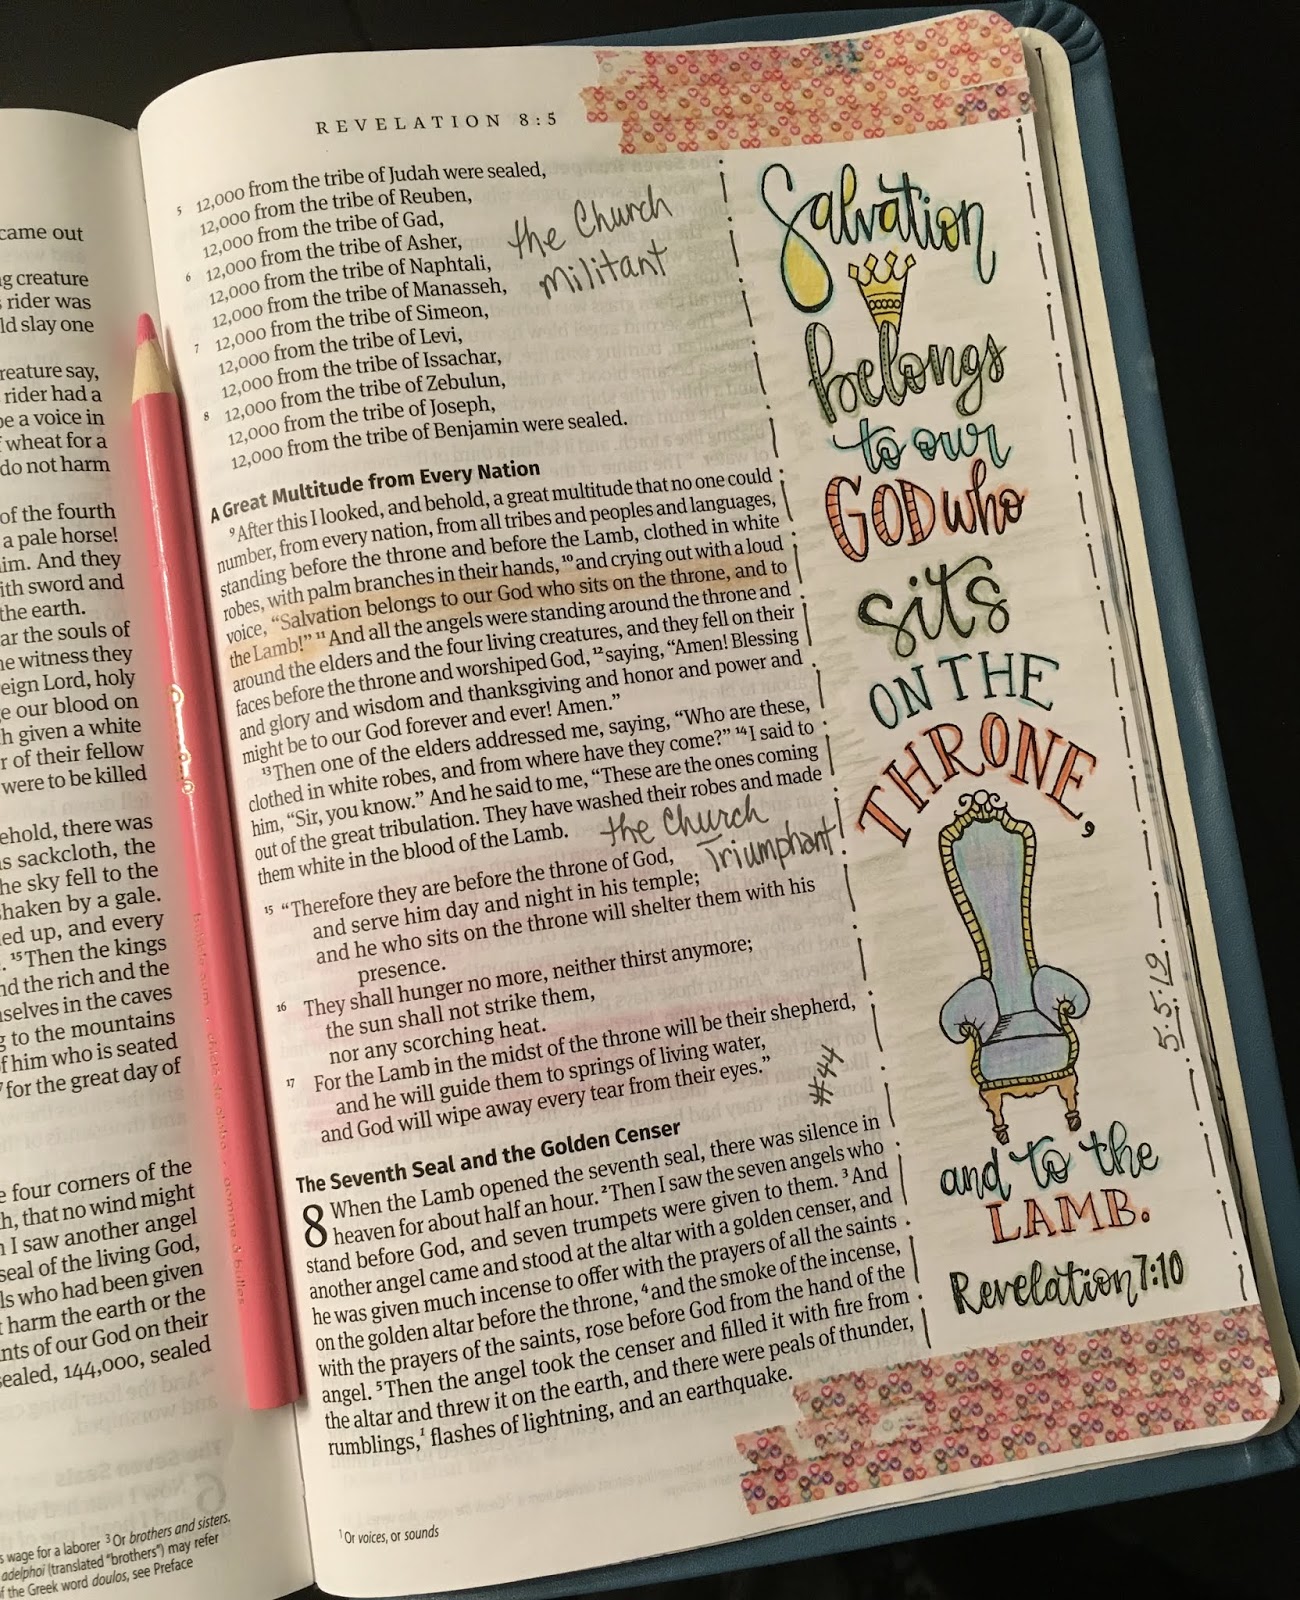 came out
ng creature
s rider was
ld slay one
reature say,
rider had a
be a voice in
f wheat for a
do not harm
of the fourth
a pale horse!
him. And they
ith sword and
the earth.
ar the souls of
he witness they
eign Lord, holy
ge our blood on
h given a white
r of their fellow
were to be killed
ehold, there was
as sackcloth, the
he sky fell to the
shaken by a gale.
led up, and every
. 15Then the kings
nd the rich and the
mselves in the caves
g to the mountains
of him who is seated
for the great day of
e four corners of the
h, that no wind might
n I saw another angel
seal of the living God,
ls who had been given
t harm the earth or the
nts of our God on their
sealed, 144,000, sealed
s wage for a laborer 3 Or brothers and sisters.
adelphoi (translated “brothers”) may refer
f the Greek word doulos, see Preface
REVELATION 8:5
5 12,000 from the tribe of Judah were sealed,
12,000 from the tribe of Reuben,
12,000 from the tribe of Gad,
6 12,000 from the tribe of Asher,
12,000 from the tribe of Naphtali,
12,000 from the tribe of Manasseh,
7 12,000 from the tribe of Simeon,
12,000 from the tribe of Levi,
12,000 from the tribe of Issachar,
8 12,000 from the tribe of Zebulun,
12,000 from the tribe of Joseph,
12,000 from the tribe of Benjamin were sealed.
the Church
Militant
A Great Multitude from Every Nation
9 After this I looked, and behold, a great multitude that no one could
number, from every nation, from all tribes and peoples and languages,
standing before the throne and before the Lamb, clothed in white
robes, with palm branches in their hands, 10 and crying out with a loud
voice, “Salvation belongs to our God who sits on the throne, and to
the Lamb!” 11 And all the angels were standing around the throne and
around the elders and the four living creatures, and they fell on their
faces before the throne and worshiped God, 12 saying, “Amen! Blessing
and glory and wisdom and thanksgiving and honor and power and
might be to our God forever and ever! Amen.”
13 Then one of the elders addressed me, saying, “Who are these,
clothed in white robes, and from where have they come?” 14 I said to
him, “Sir, you know.” And he said to me, “These are the ones coming
out of the great tribulation. They have washed their robes and made
them white in the blood of the Lamb.
the Church
Triumphant!
15 “Therefore they are before the throne of God,
and serve him day and night in his temple;
and he who sits on the throne will shelter them with his
presence.
16 They shall hunger no more, neither thirst anymore;
the sun shall not strike them,
nor any scorching heat.
17 For the Lamb in the midst of the throne will be their shepherd,
and he will guide them to springs of living water,
and God will wipe away every tear from their eyes.”
#44
The Seventh Seal and the Golden Censer
8 When the Lamb opened the seventh seal, there was silence in
heaven for about half an hour. 2 Then I saw the seven angels who
stand before God, and seven trumpets were given to them. 3 And
another angel came and stood at the altar with a golden censer, and
he was given much incense to offer with the prayers of all the saints
on the golden altar before the throne, 4 and the smoke of the incense,
with the prayers of the saints, rose before God from the hand of the
angel. 5 Then the angel took the censer and filled it with fire from
the altar and threw it on the earth, and there were peals of thunder,
rumblings,1 flashes of lightning, and an earthquake.
1 Or voices, or sounds
Salvation
belongs
to our
GOD who
sits
ON THE
THRONE,
and to the
LAMB.
Revelation 7:10
5.5.19